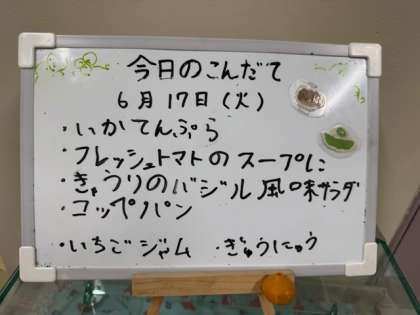 今日のこんだて
6月17日(火)
・いかてんぷら
・フレッシュトマトのスープに
・きゅうりのバジル風味サラダ
・コッペパン
・いちごジャム ・ぎゅうにゅう